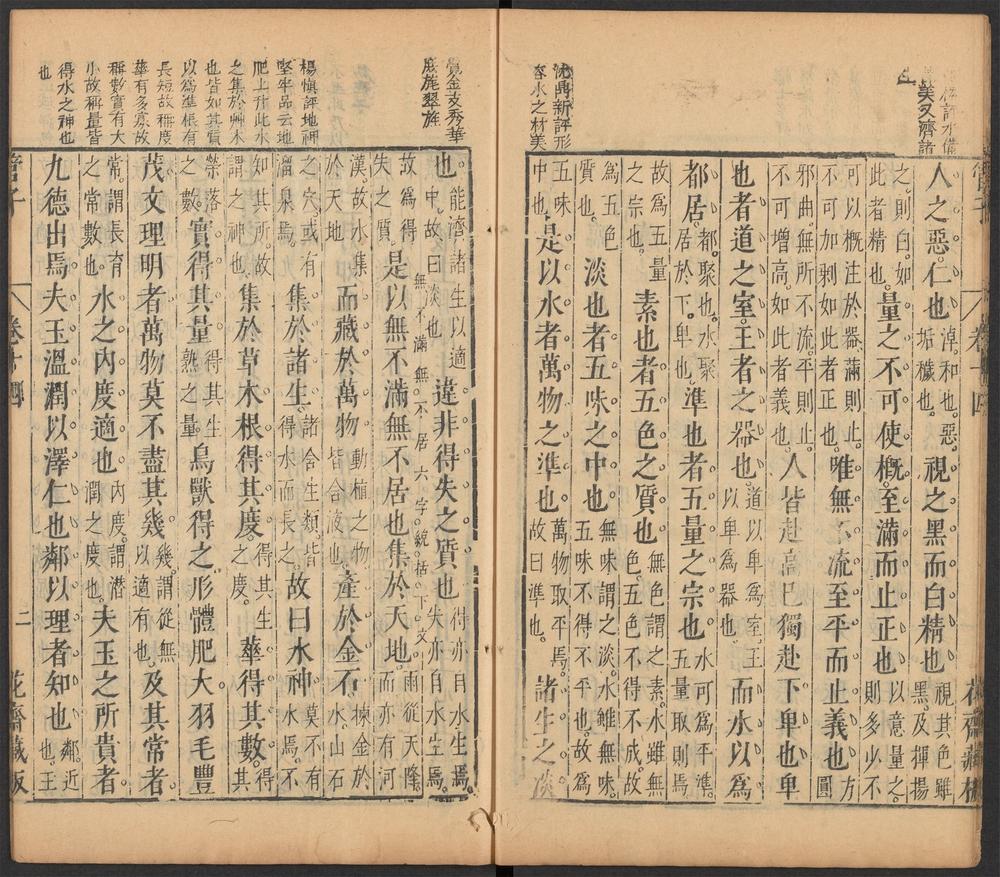 美又濟諸
沈鼎新評形
容水之材美
管子
卷十四
花齋藏板
人之惡。仁也淖。和也。惡。垢穢也。視之黑而白精也視其色雖黑。及揮揚
之。則白。如此者精也。量之不可使概。至滿而止正也以意量之。則多少不
可以概注於器。滿則止。不可加剥如此者正也。唯無不流至平而止義也方圓
邪曲無所不流。平則止。不可增高。如此者義也。人皆赴高己獨赴下卑也卑
也者道之室。王者之器也道以卑為室。王以卑為器也而水以為
都居。都。聚也。水聚居於下。卑也。準也者五量之宗也水可為平準。五量取則焉
故為五量之宗也。素也者五色之質也無色謂之素。水雖無色。五色不得不成。故
為五色質也。淡也者五味之中也無味謂之淡。水雖無味。五味不得不平也。故為
五味中也。是以水者萬物之準也萬物取平焉。故曰準也。諸生之淡
金支秀華
庶旄翠旌
楊慎評地神
堅牢品云地
肥上升此水
之集於艸木
也皆如其質
以為準根有
長短故稱度
華有多寡故
稱數實有大
小故稱量皆
得水之神也
也
也。能濟諸生以適中。故曰淡也違非得失之質也得亦自水生焉。失亦自水生焉。
無不滿無不居六字統括下文
故為得失之質。是以無不滿無不居也集於天地。雨從天降。而亦有河
漢。故水集於天地而藏於萬物動植之物皆含液也。產於金石揀金於水。山石
之穴。或有溜泉焉。集於諸生。諸含生類。皆得水而長之。故曰水神。莫不有水焉。不
知其所。故謂之神也集於草木根得其度。得其生之度。華得其數。得其
榮落之數。實得其量得其生熟之量。鳥獸得之形體肥大。羽毛豐
茂文理明者萬物莫不盡其幾。幾。謂從無以適有也。及其常者
常。謂長育之常數也。水之內度適也內度。謂潛潤之度也。夫玉之所貴者
九德出焉。夫玉溫潤以澤仁也鄰以理者知也鄰近也。王
管子
卷十四
二
花齋藏板